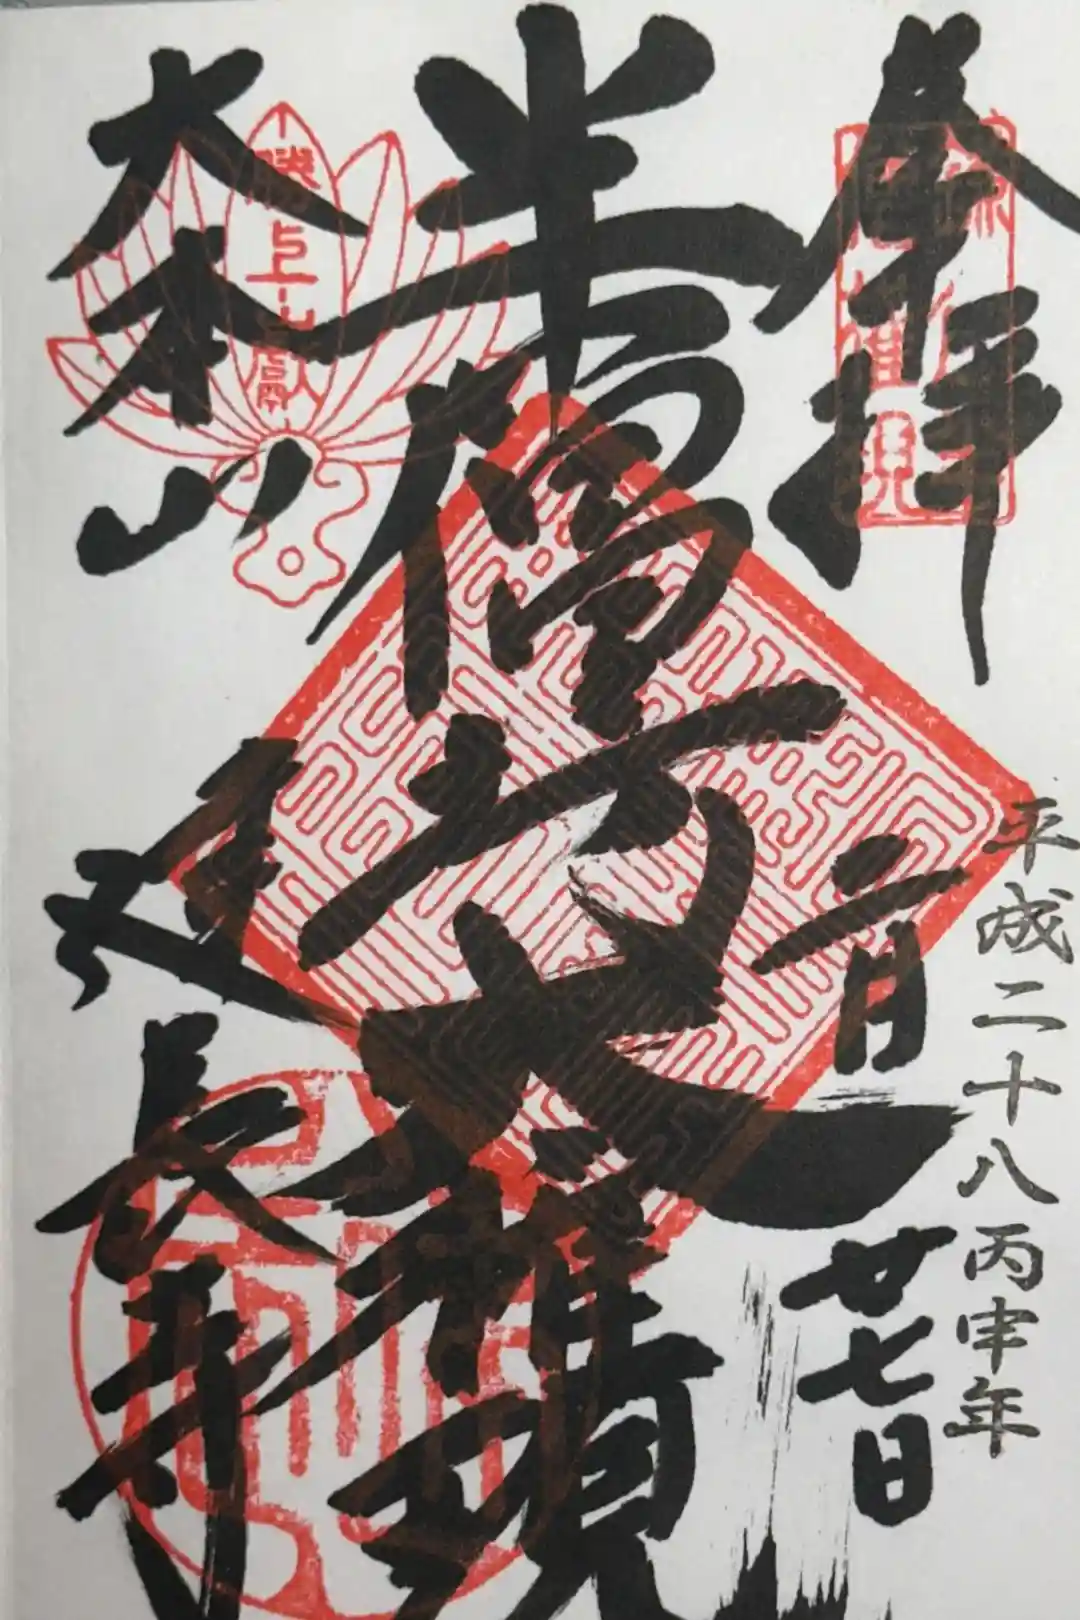 奉拝
平成二十八丙申年
二月廿七日
半僧坊大権現
大本山
建長寺